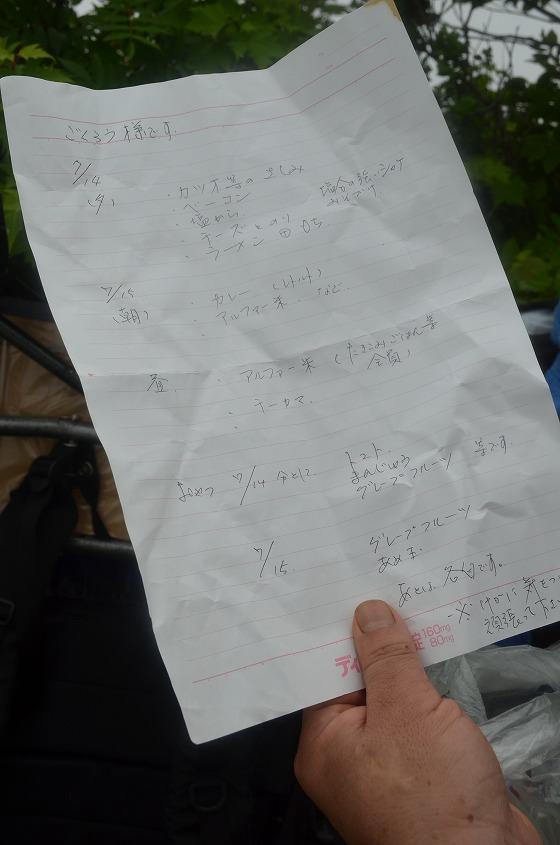 ごくろう様です.
7/14
(夕)
・カツオ等のさしみ
・ベーコン
・塩から
・チーズとのり
・ラーメン 田 もち
塩分の強いシャケ
7/15
(朝)
・カレー (レトルト)
・アルファー米 など.
昼.
・アルファー米 (たきこみごはん等
全員)
おやつ 7/14 分として
トマト.
まんじゅう
グレープフルーツ 等です.
7/15
グレープフルーツ
あめ玉.
あとは 各自です.
※ けがに気をつ
頑張って下さ
ディ
錠 160mg
80mg